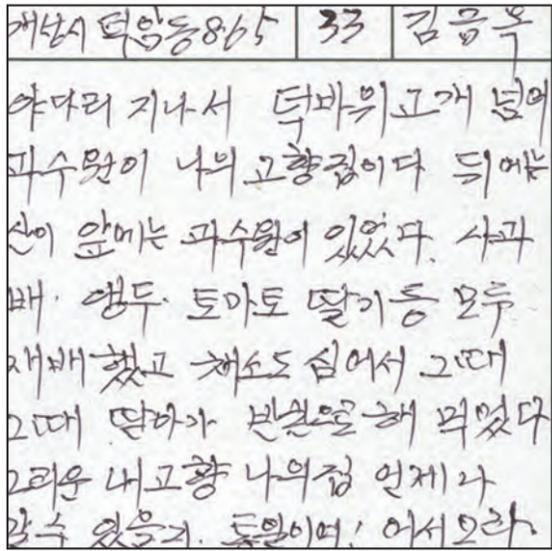 개산시 덕암동 865 33 김금옥
야다리 지나서 턱바위고개 넘어
과수원이 나의 고향집이다 뒤에는
산이 앞에는 과수원이 있었다. 사과
배. 앵두. 토마토 딸기 등 모두
재배 했고 채소도 심어서 그때
그때 따다가 반찬으로 해 먹었다
그리운 내고향 나의집 언제나
갈수 있을지. 통일이여! 어서오라.